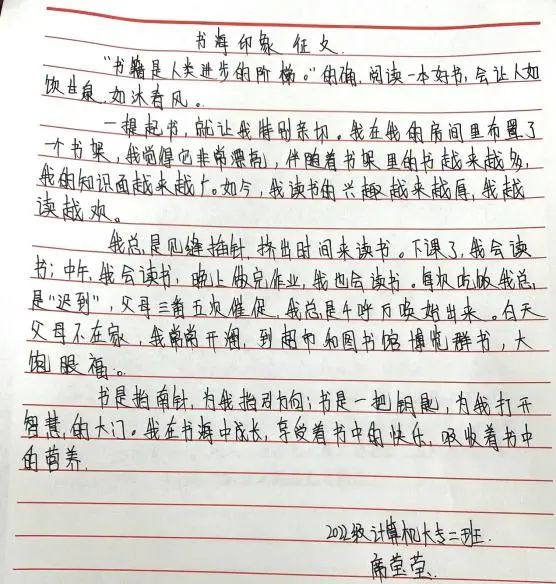 书海印象 征文
"书籍是人类进步的阶梯。"的确,阅读一本好书,会让人如
饮甘泉,如沐春风。
一提起书,就让我特别亲切。我在我的房间里布置了
个书架,我觉得它非常漂亮,伴随着书架里的书越来越多,
我的知识面越来越广。如今,我读书的兴趣越来越厚,我越
读越欢。
我总是见缝插针,挤出时间来读书。下课了,我会读
书;中午,我会读书,晚上做完作业,我也会读书。每次吃饭我总
是"迟到",父母三角五次催促,我总是千呼万唤始出来。白天
父母不在家,我常常开溜,到超市和图书馆博览群书,大
饱眼福。
书是指南针,为我指引方向;书是一把钥匙,为我打开
智慧的大门。我在书海中成长,享受着书中的快乐,吸收着书中
的营养.
2022级计算机大专二班.
席莹莹.